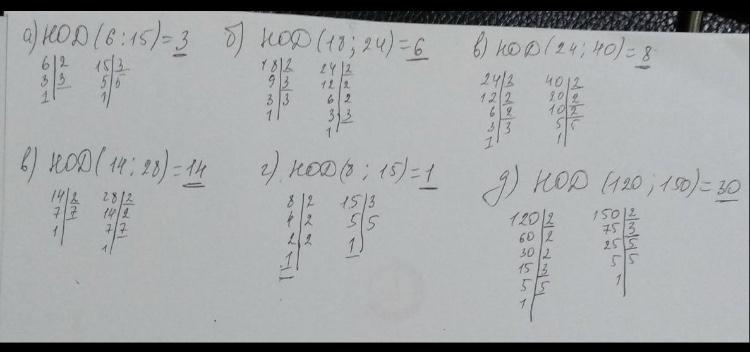 а) НОД (6 : 15) = 3
6 | 2   15 | 3
3 | 3   5 | 5
1 |   1 |
б) НОД (18 ; 24) = 6
18 | 2   24 | 2
9 | 3   12 | 2
3 | 3   6 | 2
1 |   3 | 3
1 |
в) НОД (24 ; 40) = 8
24 | 2   40 | 2
12 | 2   20 | 2
6 | 2   10 | 2
3 | 3   5 | 5
1 |   1 |
в) НОД (14 ; 28) = 14
14 | 2   28 | 2
7 | 7   14 | 2
1 |   7 | 7
1 |
г) НОД (8 ; 15) = 1
8 | 2   15 | 3
4 | 2   5 | 5
2 | 2   1 |
1 |
д) НОД (120 ; 150) = 30
120 | 2   150 | 2
60 | 2   75 | 3
30 | 2   25 | 5
15 | 3   5 | 5
5 | 5   1 |
1 |